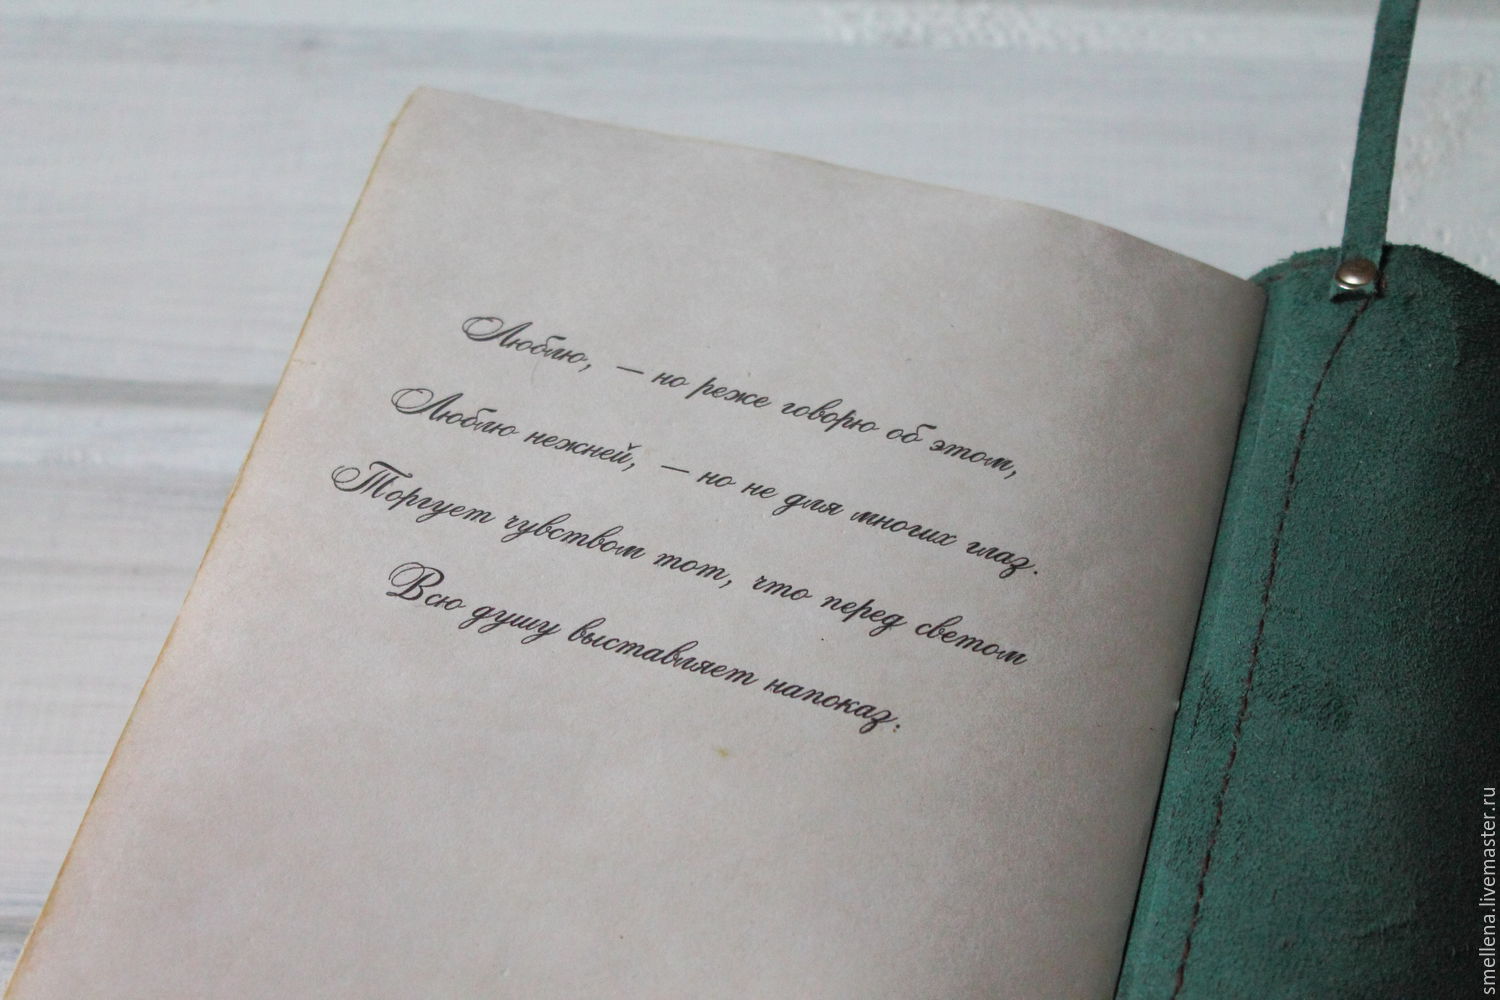 Люблю, — но реже говорю об этом,
Люблю нежней, — но не для многих глаз.
Торгует чувством тот, что перед светом
Всю душу выставляет напоказ.
smellena.livemaster.ru